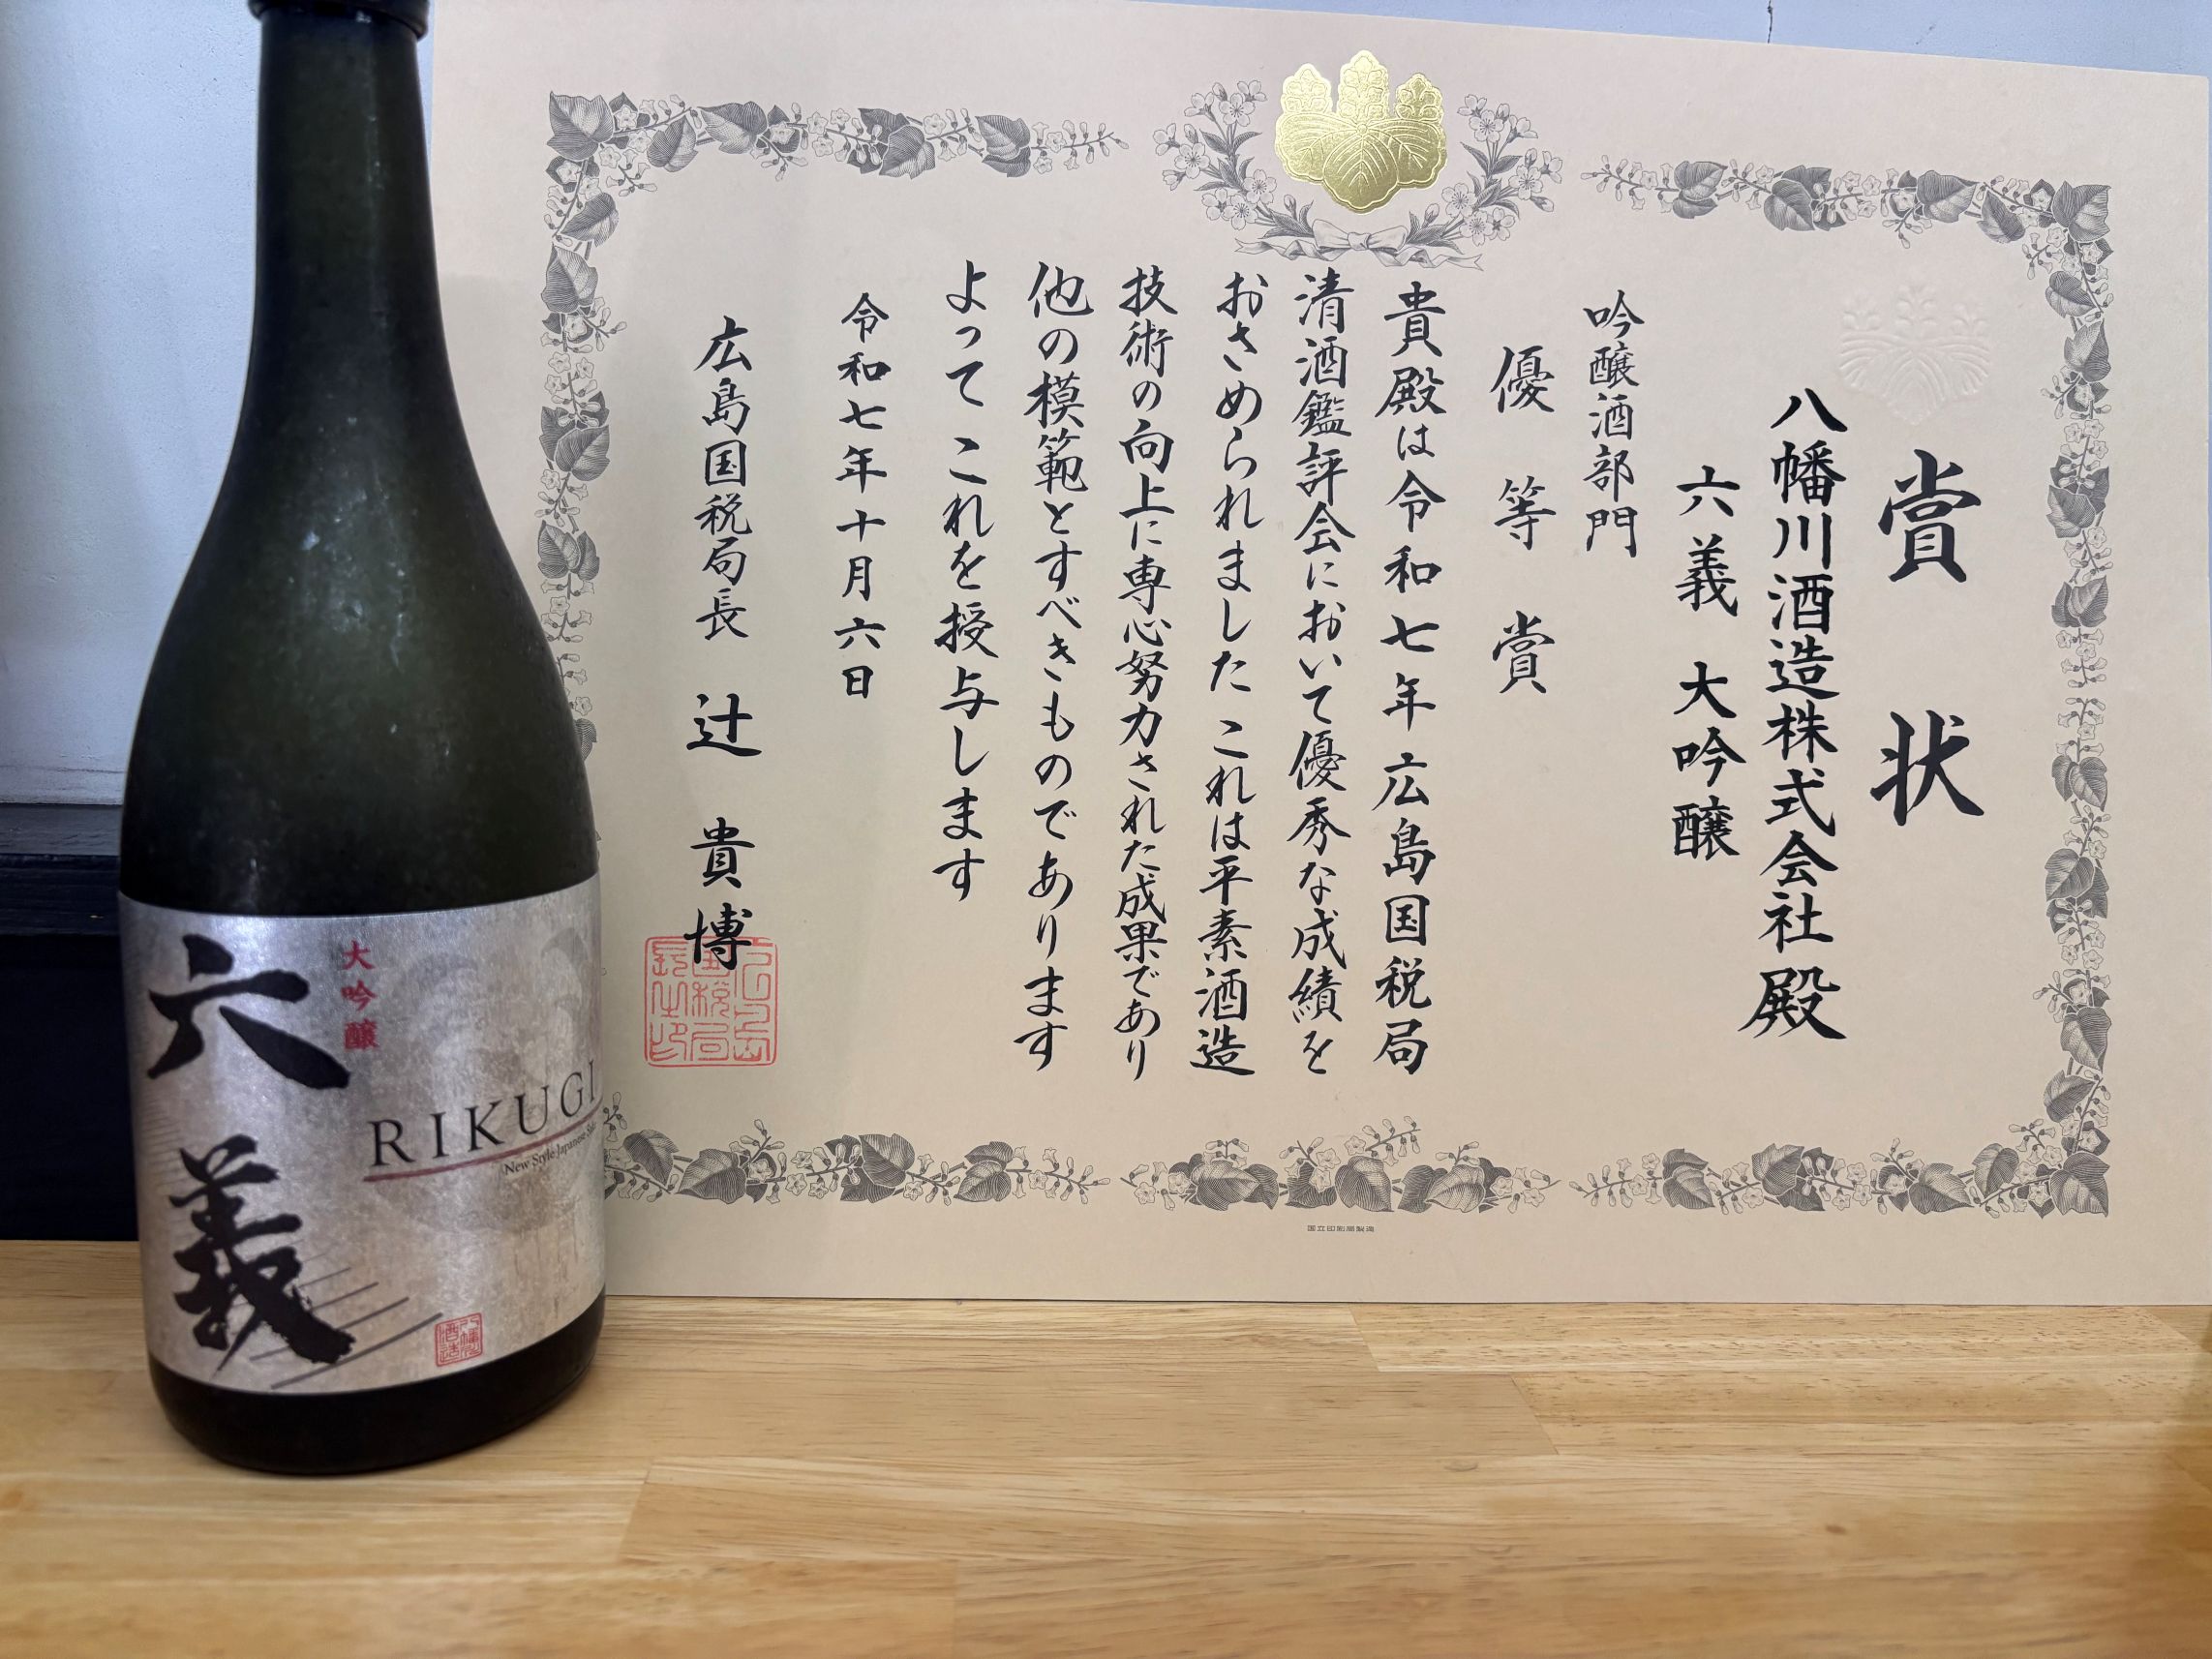 賞状
八幡川酒造株式会社殿
六義 大吟醸
吟醸酒部門
優等賞
貴殿は令和七年広島国税局
清酒鑑評会において優秀な成績を
おさめられました これは平素酒造
技術の向上に専心努力された成果であり
他の模範とすべきものであります
よってこれを授与します
令和七年十月六日
広島国税局長 辻 貴博
広島国税局長之印
国立印刷局製造
大吟醸
六義
RIKUGI
New Style Japanese Sake
八幡川酒造